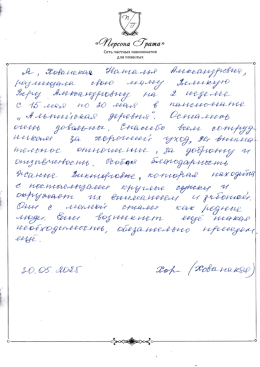 «Персона Грата»
Сеть частных пансионатов
для пожилых
Я, Хованская Наталья Александровна,
размещала свою маму
Веру Александровну на 2 недели
с 15 мая по 30 мая в пансионате
"Альпийская деревня". Остались
очень довольны. Спасибо всем сотруд-
никам за хороший уход, за внима-
тельное отношение, за доброту и
отзывчивость. Особая благодарность
Жанне Викторовне, которая находится
с постояльцами круглые сутки и
окружает их вниманием и заботой.
Они с мамой стали как родные
люди. Если возникнет еще такая
необходимость, обязательно приедем
еще.
30.05.2025 Хов- (Хованская)